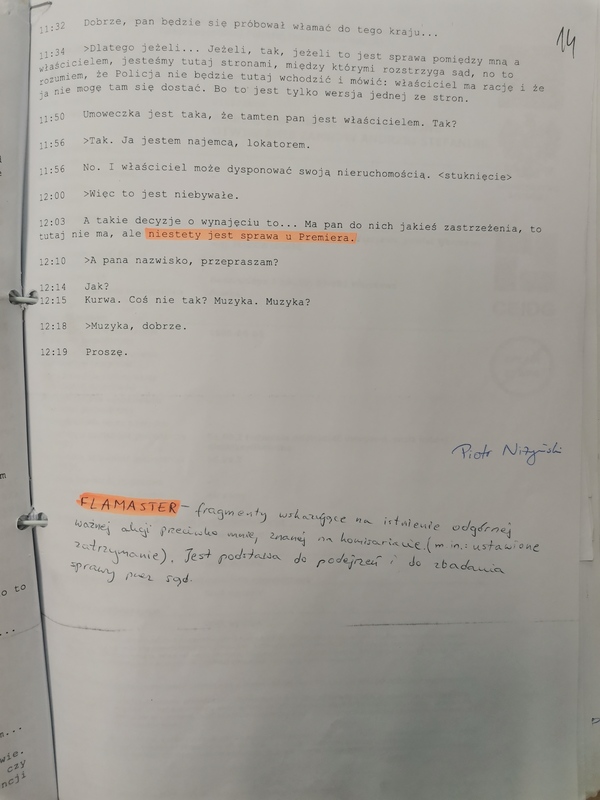 14
11:32 Dobrze, pan będzie się próbował włamać do tego kraju...
11:34 >Dlatego jeżeli... Jeżeli, tak, jeżeli to jest sprawa pomiędzy mną a
właścicielem, jesteśmy tutaj stronami, między którymi rozstrzyga sąd, no to
rozumiem, że Policja nie będzie tutaj wchodzić i mówić: właściciel ma rację i że
ja nie mogę tam się dostać. Bo to jest tylko wersja jednej ze stron.
11:50 Umoweczka jest taka, że tamten pan jest właścicielem. Tak?
11:56 >Tak. Ja jestem najemca, lokatorem.
11:56 No. I właściciel może dysponować swoją nieruchomością. <stuknięcie>
12:00 >Więc to jest niebywałe.
12:03 A takie decyzje o wynajęciu to... Ma pan do nich jakieś zastrzeżenia, to
tutaj nie ma, ale niestety jest sprawa u Premiera.
12:10 >A pana nazwisko, przepraszam?
12:14 Jak?
12:15 Kurwa. Coś nie tak? Muzyka. Muzyka?
12:18 >Muzyka, dobrze.
12:19 Proszę.
Piotr Niżyński
FLAMASTER - fragmenty wskazujące na istnienie odgórnej
ważnej akcji przeciwko mnie, znanej na komisariacie (m.in.: ustawione
zatrzymanie). Jest podstawa do podejrzeń i do zbadania
sprawy przez sąd.
m
o to
...
wie.
czy
ncji